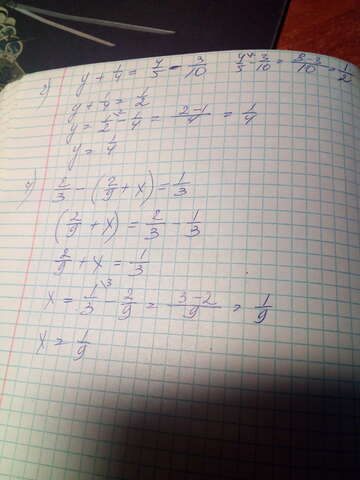 2) y + 1/4 = 4/5 - 3/10   4/5 - 3/10 = 8-3/10 = 1/2
y + 1/4 = 1/2
y = 1/2 - 1/4 = 2-1/4 = 1/4
y = 1/4
4) 2/3 - (2/9 + x) = 1/3
(2/9 + x) = 2/3 - 1/3
2/9 + x = 1/3
x = 1/3 \3 - 2/9 = 3-2/9 = 1/9
x = 1/9